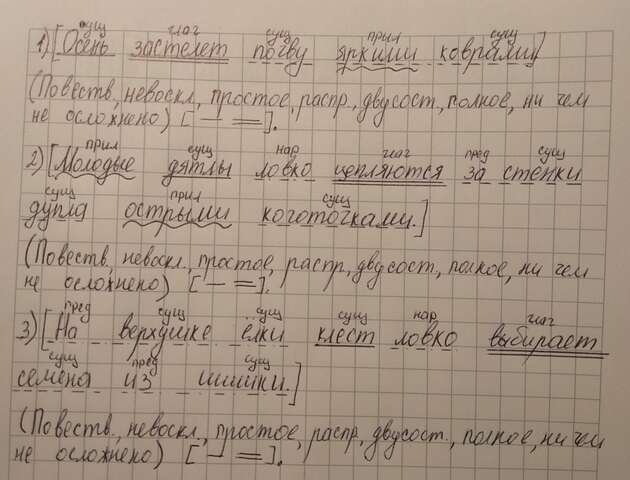 сущ глаг сущ прил сущ
1) [Осень застелет почву яркими коврами]
(Повеств, невоскл, простое, распр, двусост, полное, ни чем
не осложнено) [— =].
прил сущ нар глаг пред сущ
2) [Молодые дятлы ловко цепляются за стенки
сущ прил сущ
дупла острыми коготочками.]
(Повеств, невоскл., простое, распр, двусост, полное, ни чем
не осложнено) [— =].
пред сущ сущ сущ нар глаг
3) [На верхушке ёлки клест ловко выбирает
сущ пред сущ
семена из шишки.]
(Повеств., невоскл., простое, распр, двусост., полное, ни чем
не осложнено) [— =].